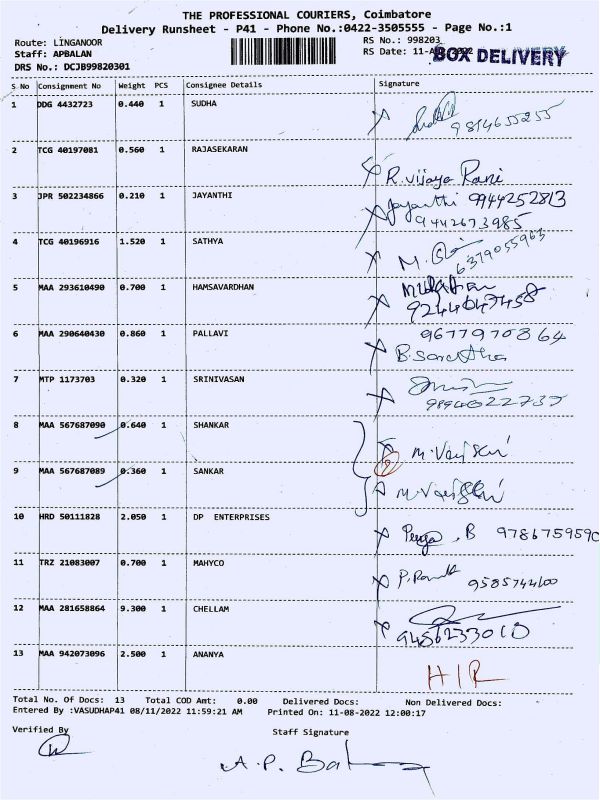 THE PROFESSIONAL COURIERS, Coimbatore
Delivery Runsheet - P41 - Phone No.:0422-3505555 - Page No.:1
Route: LINGANOOR RS No.: 998203
Staff: APBALAN RS Date: 11-Aug-2022 BOX DELIVERY
DRS No.: DCJB99820301
S No Consignment No Weight PCS Consignee Details Signature
1 DDG 4432723 0.440 1 SUDHA
9814655255
2 TCG 40197081 0.560 1 RAJASEKARAN
R. vijaya Rani
3 JPR 502234866 0.210 1 JAYANTHI Jayanthi 9944252813
9442673985
4 TCG 40196916 1.520 1 SATHYA
6379055963
5 MAA 293610490 0.700 1 HAMSAVARDHAN
9244047458
6 MAA 290640430 0.860 1 PALLAVI 9677970864
7 MTP 1173703 0.320 1 SRINIVASAN
9894022735
8 MAA 567687090 0.640 1 SHANKAR
9 MAA 567687089 0.360 1 SANKAR
10 HRD 50111828 2.050 1 DP ENTERPRISES
9786759590
11 TRZ 21083007 0.700 1 MAHYCO
9585744600
12 MAA 281658864 9.300 1 CHELLAM
9456233010
13 MAA 942073096 2.500 1 ANANYA
H/R
Total No. Of Docs: 13 Total COD Amt: 0.00 Delivered Docs: Non Delivered Docs:
Entered By :VASUDHAP41 08/11/2022 11:59:21 AM Printed On: 11-08-2022 12:00:17
Verified By Staff Signature
A.P. Bal